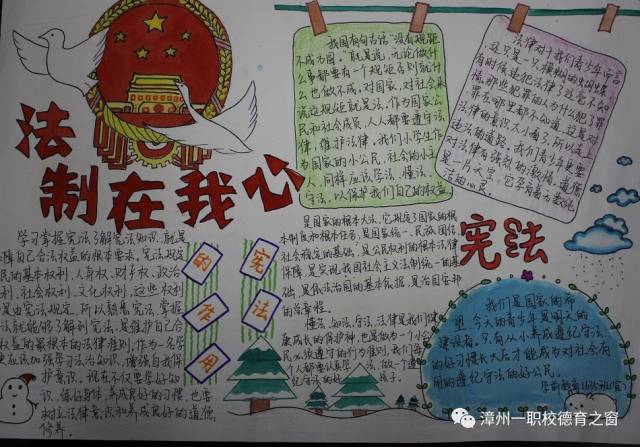 法
制在我心
我国有句古话"没有规矩
不成方圆。"就是说,无论做什
么事都要有一个规矩否则就什
么也做不成,对国家,对社会来
说这规矩就是法。作为国家公
民和社会成员,人人都要遵守法
律,维护法律。我们小学生作
为国家的小公民,社会的小主
人,同样应该学法、懂法、
守法,以保护我们自己的权益
法律对于我们青少年而言
还只是一只
有时候连犯法了还毫不知
情。那些犯罪的人为什么犯了罪
罪在哪里都不知道,这是对
法律的意识太小看了,所以走上
违法的道路。我们青少年更要
对法律有强烈的
是一片天空,它
学习掌握宪法了解宪法知识,就是
保障自己合法权益的根本要求,宪法规定
民的基本权利,人身权、财产权、政治
利、社会权利、文化权利,这些权利
是由宪法规定,所以熟悉宪法,掌握
法就能够了解到宪法,是维护自己合
权益的最根本的法律准则,作为一名学
更应该加强学习法治知识,增强自我保
护意识。现在不仅要学好知
识,练好身体,养成良好的习惯,也要
树立法律意识和养成良好的道德
修养。
的
作
用
宪
法
是国家的根本大法,它规定了国家的根
本制度和根本任务,是国家统一、民族团结
社会稳定的基础,是公民权利的根本法律
保障,是实现我国社会主义法制统一的基
础,是依法治国的基本依据,是治国安邦
的总章程。
懂法、知法、守法,法律是我们健
康成长的保护神,也是做为一个小公
民必须遵守的行为准则,我们每
个人都要认真学法,做一个遵
纪守法的好
孩子。
宪法
我们是国家的希
望,今天的青少年是明天的
建设者。只有从小养成遵纪守法
的好习惯长大后才能成为对社会有
用的遵纪守法的好公民。
漳州一职校德育之窗